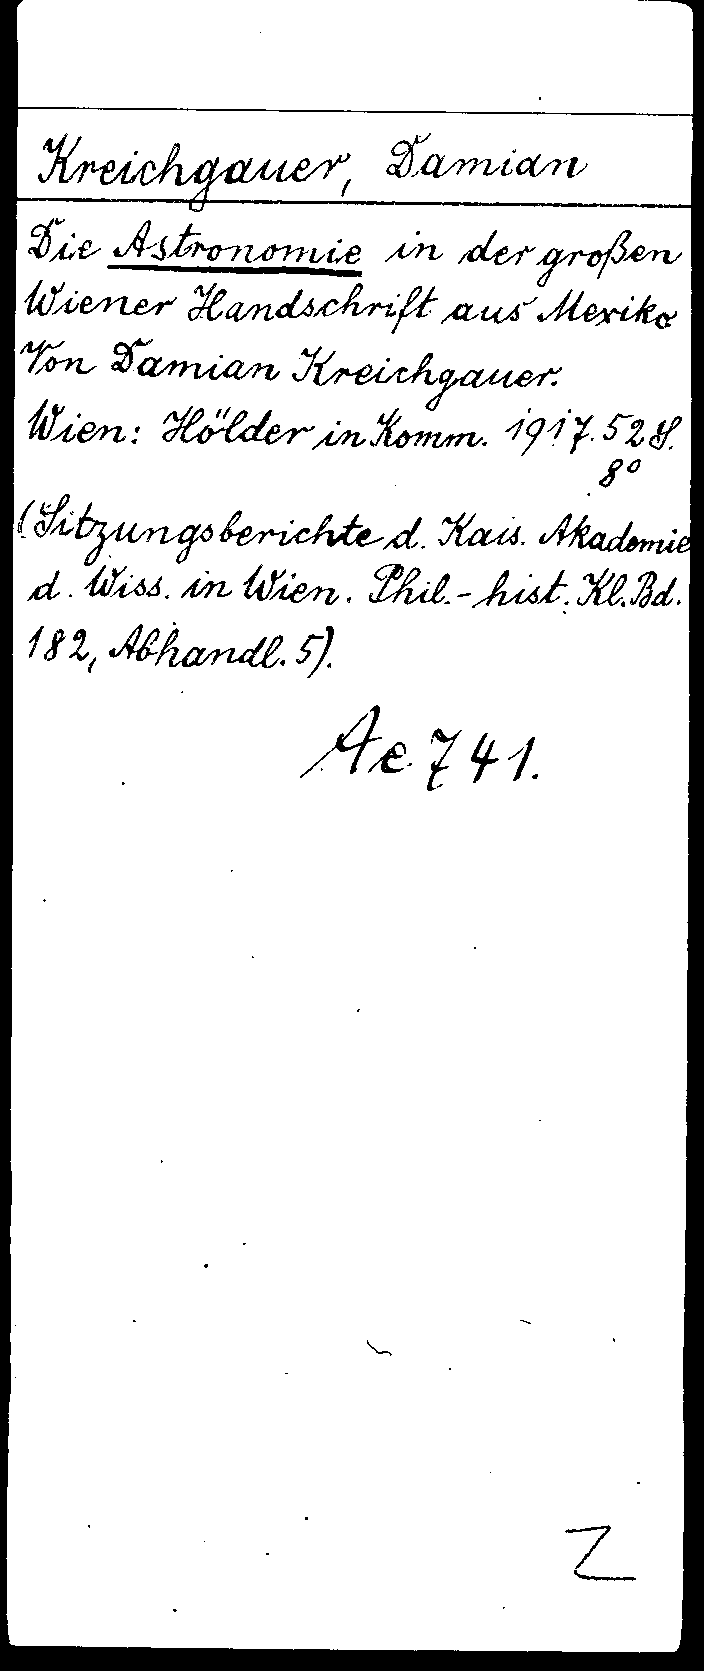 Kreichgauer, Damian
Die Astronomie in der großen
Wiener Handschrift aus Mexiko
Von Damian Kreichgauer.
Wien: Hölder in Komm. 1917. 52 S.
8°
(Sitzungsberichte d. Kais. Akademie
d. Wiss. in Wien. Phil.-hist. Kl. Bd.
182, Abhandl. 5).
Ae 741.
Z